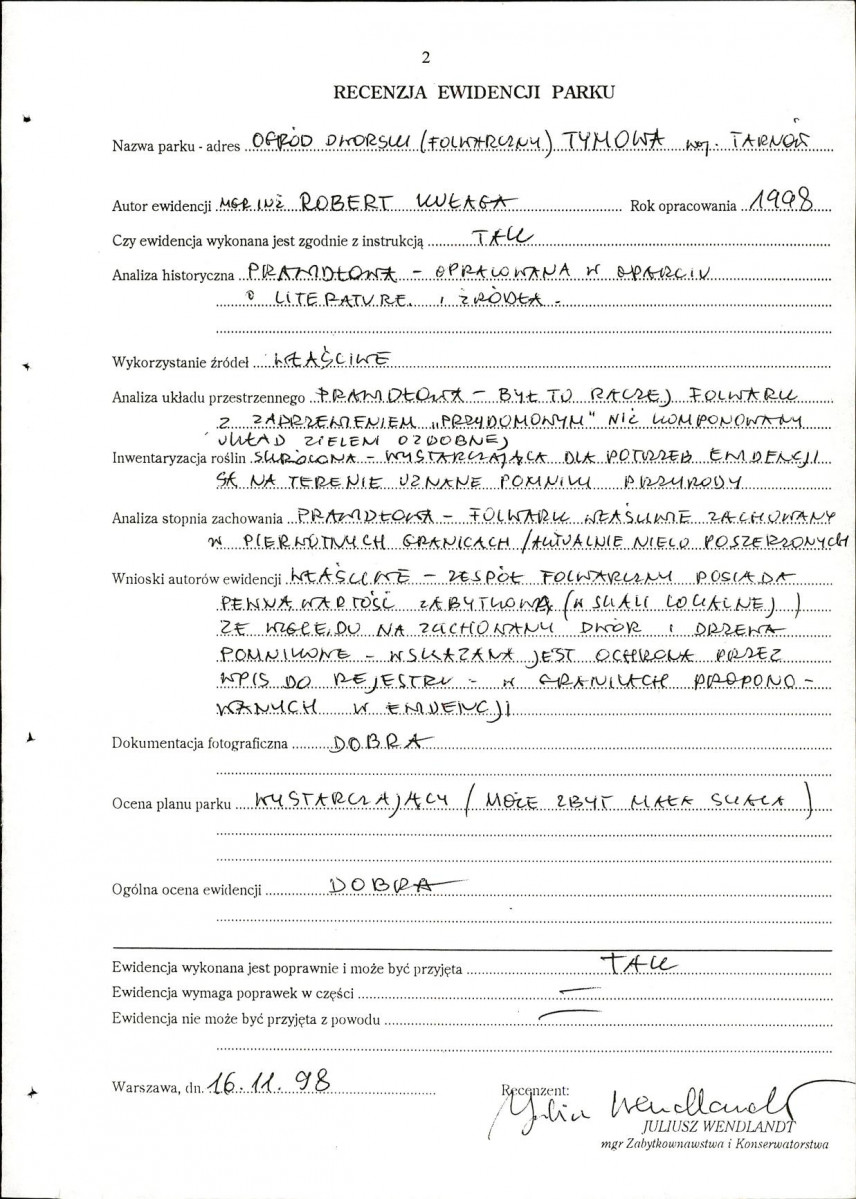 2
RECENZJA EWIDENCJI PARKU
Nazwa parku - adres OGRÓD DWORSKI (FOLWARCZNY) TYMOWA woj. TARNÓW
Autor ewidencji MGR INŻ ROBERT KUŁAGA Rok opracowania 1998
Czy ewidencja wykonana jest zgodnie z instrukcją TAK
Analiza historyczna PRAWIDŁOWA – OPRACOWANA W OPARCIU
O LITERATURĘ I ŹRÓDŁA.
Wykorzystanie źródeł WŁAŚCIWE
Analiza układu przestrzennego PRAWIDŁOWA – BYŁ TO RACZEJ FOLWARK
Z ZADRZEWIENIEM „PRZYDOMOWYM" NIŻ KOMPONOWANY
UKŁAD ZIELENI OZDOBNEJ
Inwentaryzacja roślin SKRÓCONA – WYSTARCZAJĄCA DLA POTRZEB EWIDENCJI
SĄ NA TERENIE UZNANE POMNIKI PRZYRODY
Analiza stopnia zachowania PRAWIDŁOWA – FOLWARK WŁAŚCIWIE ZACHOWANY
W PIERWOTNYCH GRANICACH /AKTUALNIE NIECO POSZERZONYCH
Wnioski autorów ewidencji WŁAŚCIWE – ZESPÓŁ FOLWARCZNY POSIADA
PEWNĄ WARTOŚĆ ZABYTKOWĄ (W SKALI LOKALNEJ)
ZE WZGLĘDU NA ZACHOWANY DWÓR I DRZEWA
POMNIKOWE – WSKAZANA JEST OCHRONA PRZEZ
WPIS DO REJESTRU – W GRANICACH PROPONO-
WANYCH W EWIDENCJI
Dokumentacja fotograficzna DOBRA
Ocena planu parku WYSTARCZAJĄCY (MOŻE ZBYT MAŁA SKALA)
Ogólna ocena ewidencji DOBRA
Ewidencja wykonana jest poprawnie i może być przyjęta TAK
Ewidencja wymaga poprawek w części —
Ewidencja nie może być przyjęta z powodu —
Warszawa, dn. 16.11.98 Recenzent:
Juliusz Wendlandt
JULIUSZ WENDLANDT
mgr Zabytkownawstwa i Konserwatorstwa